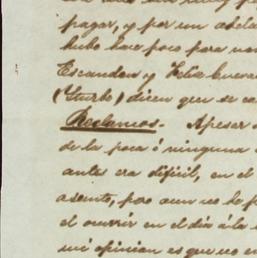 pagar, y por un
hubo hace poco para
Escandon y Felix Cuevas
(Yturbe) dicen que se ca
Reclamos. Apesar
de la poca ó ninguna
antes era dificil, en el
asunto, pero aun no le
el ocurrir en el dia á la
mi opinion es que no